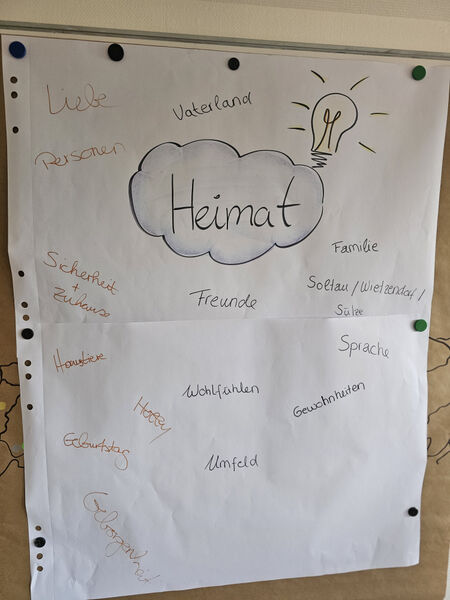 Liebe
Vaterland
Personen
Heimat
Familie
Sicherheit
+
Zuhause
Freunde
Soltau / Wietzendorf /
Sülze
Sprache
Haustiere
Wohlfühlen
Gewohnheiten
Hobby
Geburtstag
Umfeld
Geborgenheit